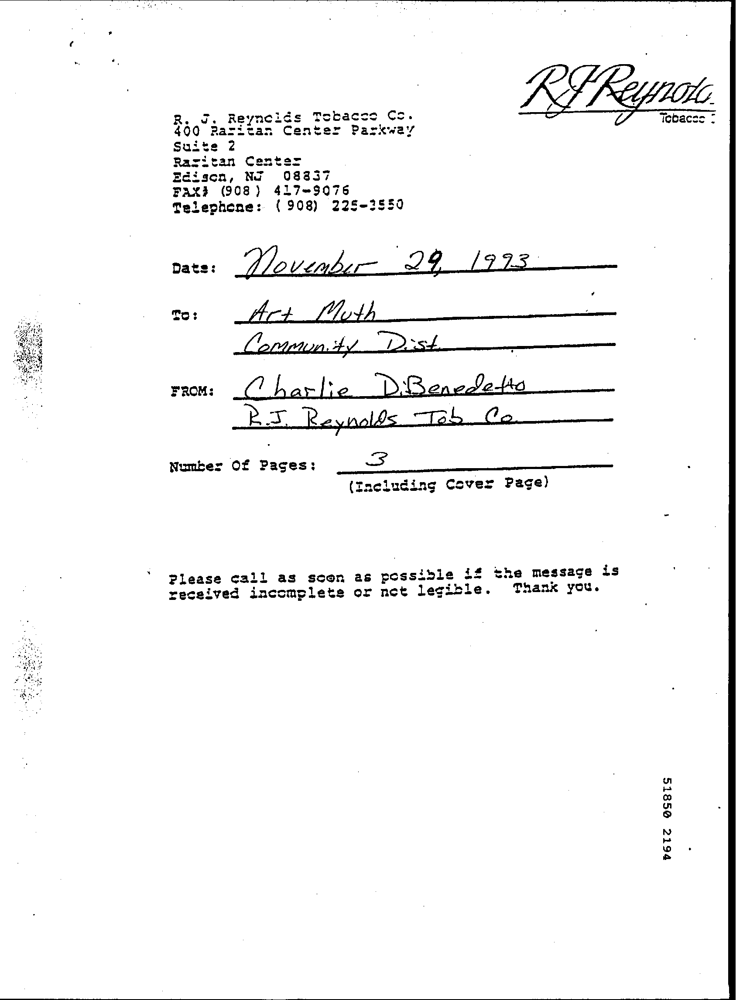 RJReynol
Tobacco
R. J. Reynolds Tobacco Co.
400 Raritan Center Parkway
Suite 2
Raritan Center
Edison, NJ 08837
FAX# (908) 417-9076
Telephone: (908) 225-3550
Date: November 29, 1993
To: Art Muth
Community Dist.
FROM: Charlie DiBenedetto
R.J. Reynolds Tob Co
Number Of Pages: 3
(Including Cover Page)
Please call as soon as possible if the message is
received incomplete or not legible. Thank you.
51850 2194